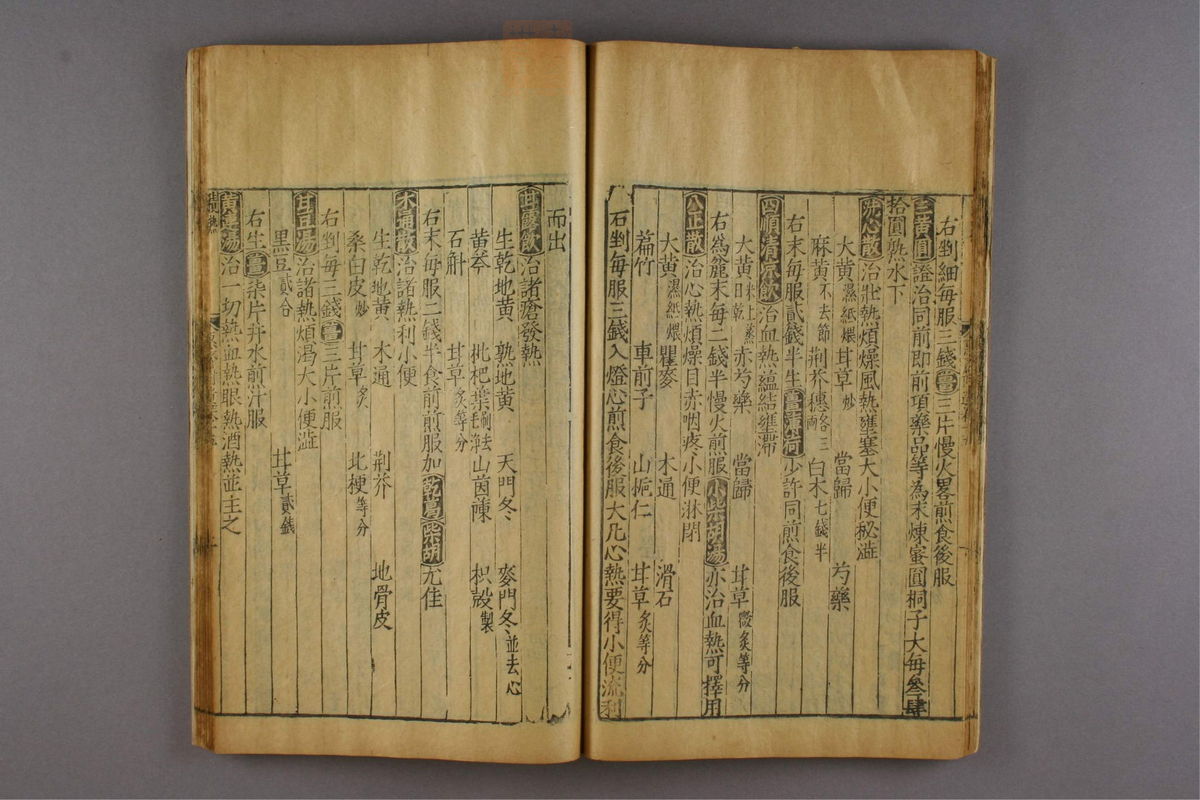 右剉細每服三錢薑三片慢火畧煎食後服
三黃圓證治同前即前項藥品等為末煉蜜圓桐子大每叄肆
拾圓熟水下
洗心散治壯熱煩燥風熱壅塞大小便秘澁
大黃濕紙煨甘草炒當歸芍藥
麻黃不去節荆芥穗各三兩白朮七錢半
右末每服貳錢半生薑薄荷少許同煎食後服
四順清凉飲治血熱蘊結壅滯
大黃米上蒸日乾赤芍藥當歸甘草微炙等分
右為麄末每二錢半慢火煎服小柴胡湯亦治血熱可擇用
八正散治心熱煩燥目赤咽疼小便淋閉
大黃濕紙煨瞿麥木通滑石
萹竹車前子山梔仁甘草炙等分
右剉每服三錢入燈心煎食後服大凡心熱要得小便流利
而出
甘露飲治諸瘡發熱
生乾地黃熟地黃天門冬麥門冬並去心
黃芩枇杷葉刷去毛山茵蔯枳殼製
石斛甘草炙等分
右末每服二錢半食前煎服加乾葛柴胡尤佳
木通散治諸熱利小便
生乾地黃木通荆芥地骨皮
桑白皮炒甘草炙北梗等分
右剉每三錢薑三片煎服
甘豆湯治諸熱煩渴大小便澁
黑豆貳合甘草貳錢
右生薑柒片井水煎汁服
黃連湯治一切熱血熱眼熱酒熱並主之